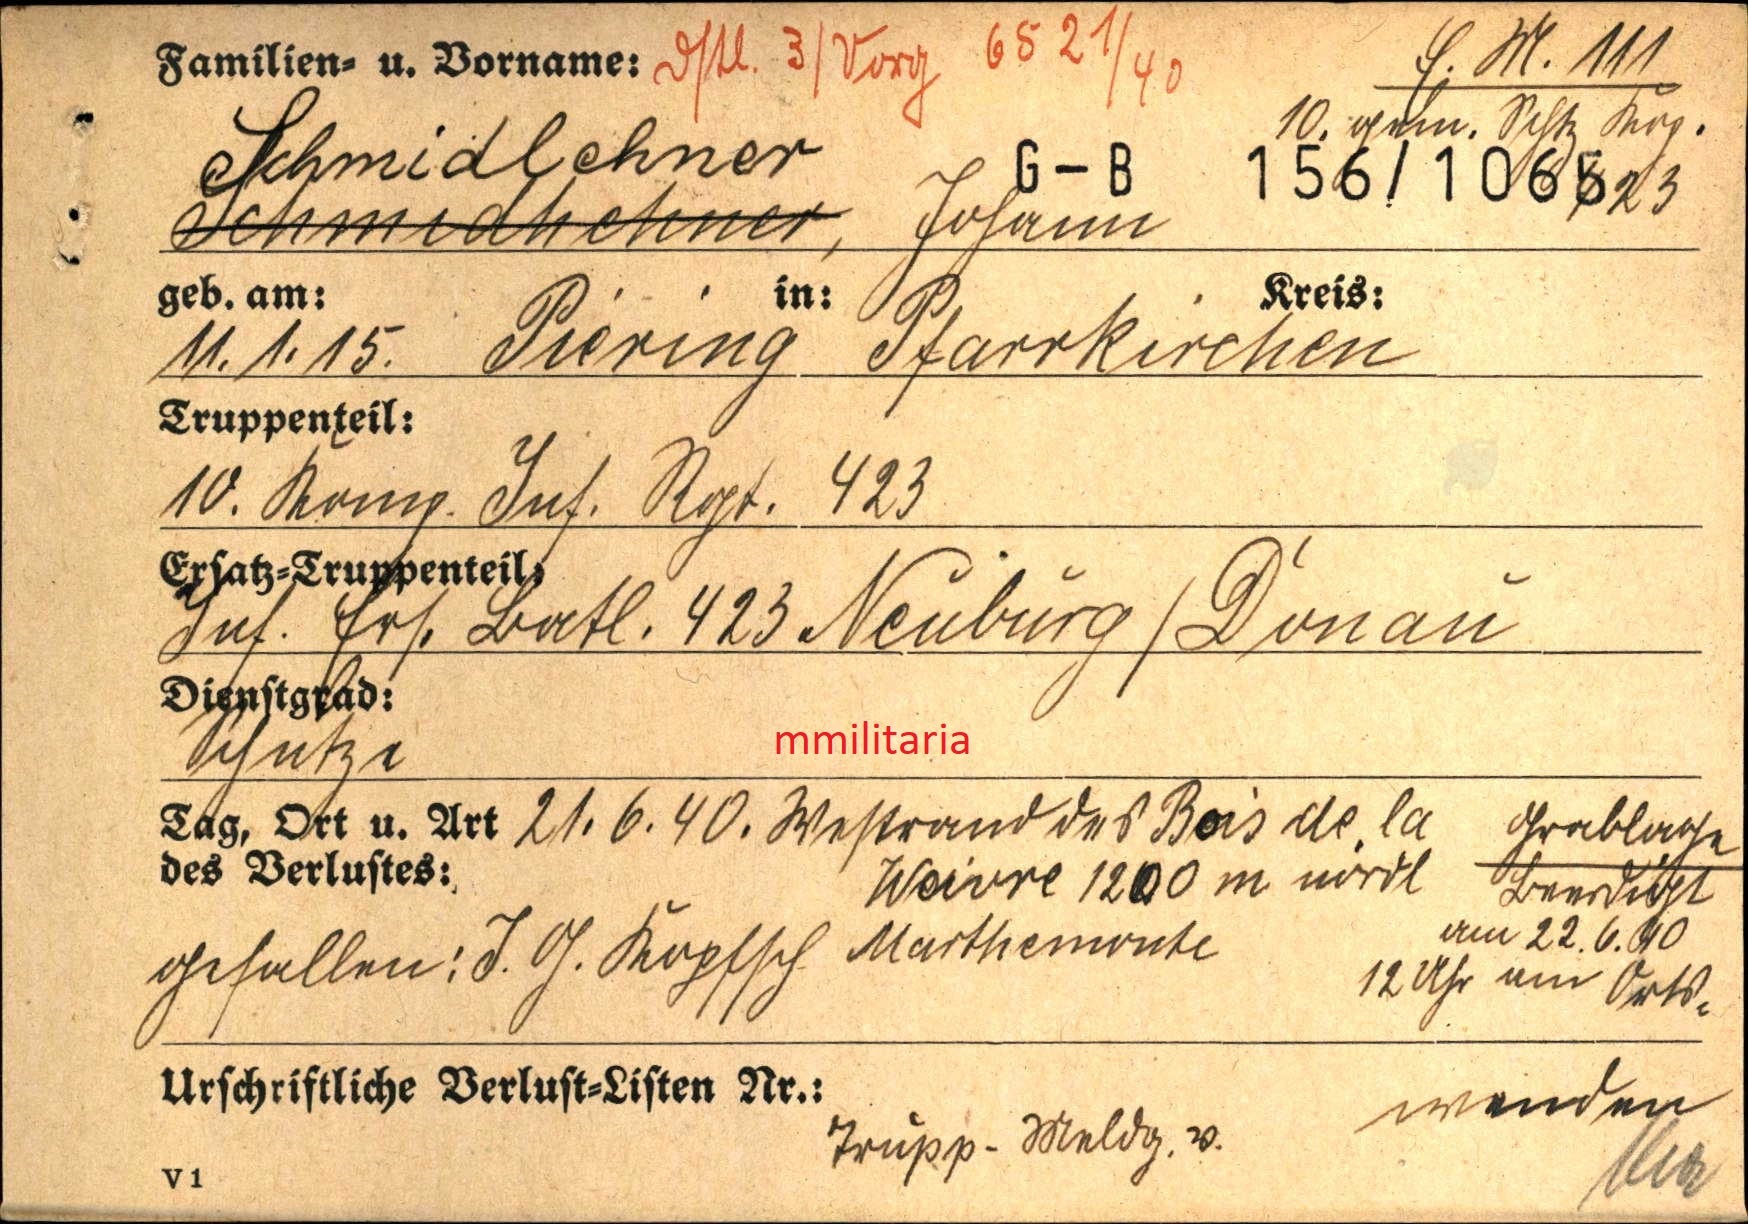 Familien- u. Vorname: Dstl. 3/Vorg 6521/40
E. M. 111
10. gem. Schtz Kop.
Schmidlehner G-B 156/1065 /23
Schmidhehner, Johann
geb. am: in: Kreis:
11.1.15. Piering Pfarrkirchen
Truppenteil:
10. Komp. Inf. Rgt. 423
Ersatz-Truppenteil:
Inf. Ers. Batl. 423 Neuburg/Donau
Dienstgrad:
Schütze
mmilitaria
Tag, Ort u. Art 21.6.40. Westrand des Bois de la Grablage
des Verlustes: Woivre 1200 m nördl Beerdigt
gefallen: I. G. Kopfsch Marthemonte am 22.6.40
12 Uhr am Orts-
Urschriftliche Verlust-Listen Nr.: wenden
Trupp- Meldg. v.
V1